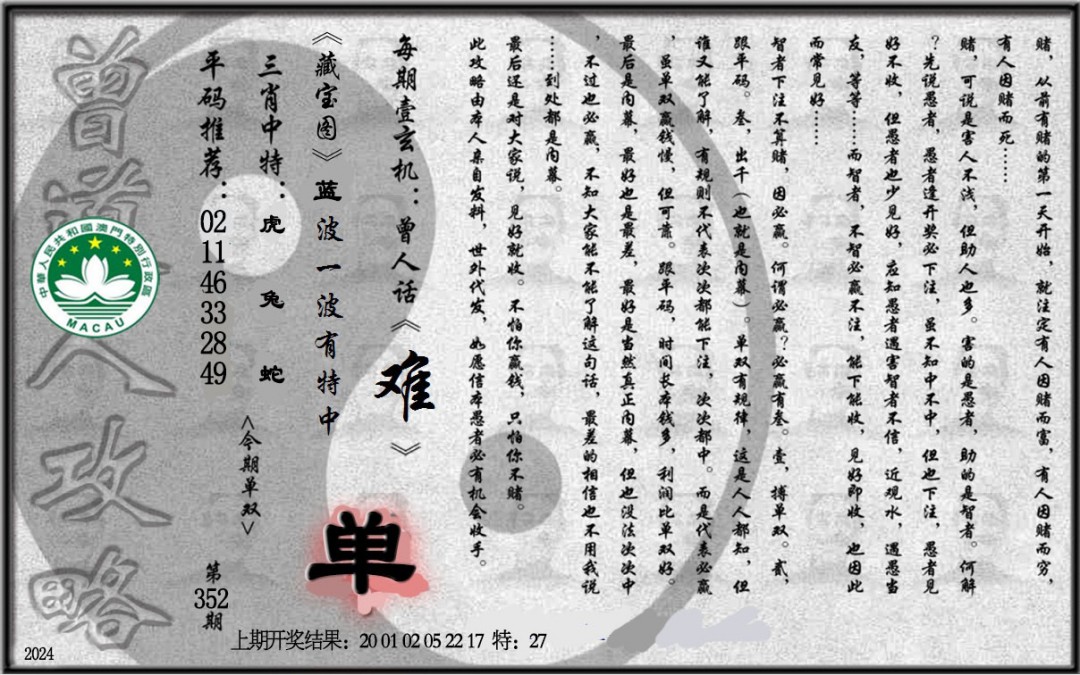 赌，从前有赌的第一天开始，就注定有人因赌而富，有人因赌而穷，
有人因赌而死……
赌，可说是害人不浅，但助人也多。害的是愚者，助的是智者。何解
？先说愚者，愚者逢开奖必下注，虽不知中不中，但也下注，愚者见
好不收，但愚者也少见好，应知愚者遇害智者不信，近观水，遇愚当
友，等等……而智者，不智必赢不注，能下能收，见好即收，也因此
而常见好……
智者下注不算赌，因必赢。何谓必赢？必赢有叁。壹，搏单双。贰，
跟平码。叁，出千（也就是内幕）。单双有规律，这是人人都知，但
谁又能了解，有规则不代表次次都能下注，次次都中。而是代表必赢
，虽单双赢钱慢，但可靠。跟平码，时间长本钱多，利润比单双好。
最后是内幕，最好也是最差，最好是当然真正内幕，但也没法次次中
，不过也必赢，不知大家能不能了解这句话，最差的相信也不用我说
……到处都是内幕。
最后还是对大家说，见好就收。不怕你赢钱，只怕你不赌。
此攻略由本人亲自发料，世外代发，如愿信本愚者必有机会收手。
每期壹玄机：曾人话《难》
《藏宝图》蓝波一波有特中
三肖中特：虎 兔 蛇
平码推荐：02 11 46 33 28 49
<今期单双>
单
第352期
曾道人攻略
中華人民共和國澳門特別行政區
MACAU
上期开奖结果：20 01 02 05 22 17 特：27
2024